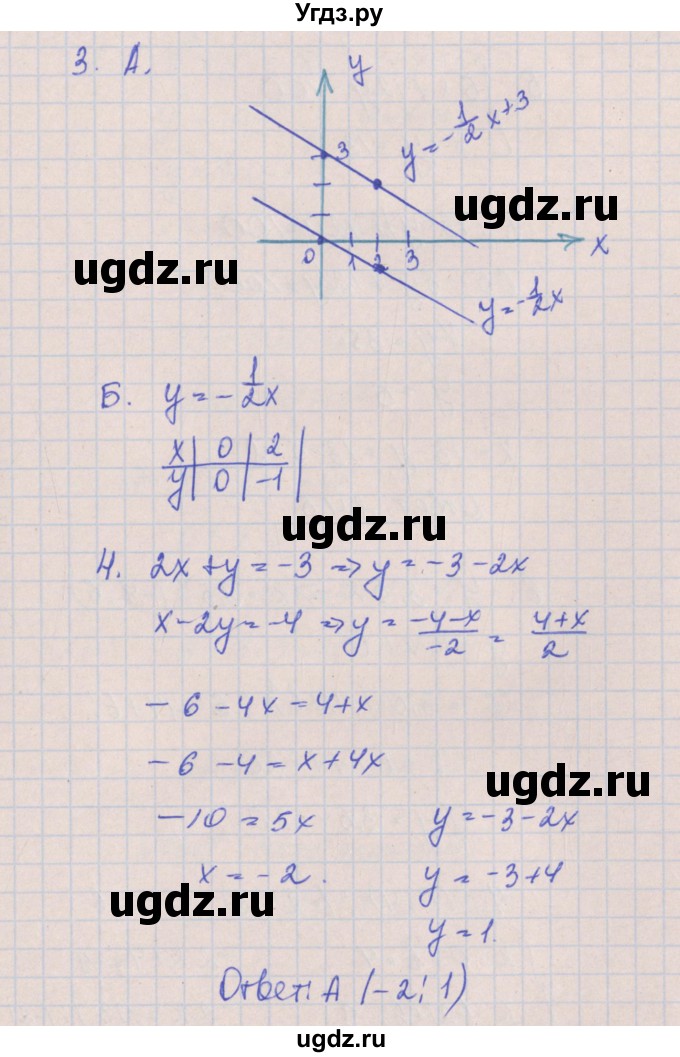 Угдз.ру
3. А.
y
y = -1/2 x + 3
3
ugdz.ru
ugdz.ru
0 1 2 3 x
y = -1/2 x
Б. y = -1/2 x
x | 0 | 2 |
y | 0 | -1 |
ugdz.ru
4. 2x + y = -3 => y = -3 - 2x
x - 2y = -4 => y = (-4-x)/(-2) = (4+x)/2
- 6 - 4x = 4 + x
- 6 - 4 = x + 4x
ugdz.ru
-10 = 5x y = -3 - 2x
x = -2. y = -3 + 4
ugdz.ru
y = 1.
Ответ: А (-2; 1)
ugdz.ru